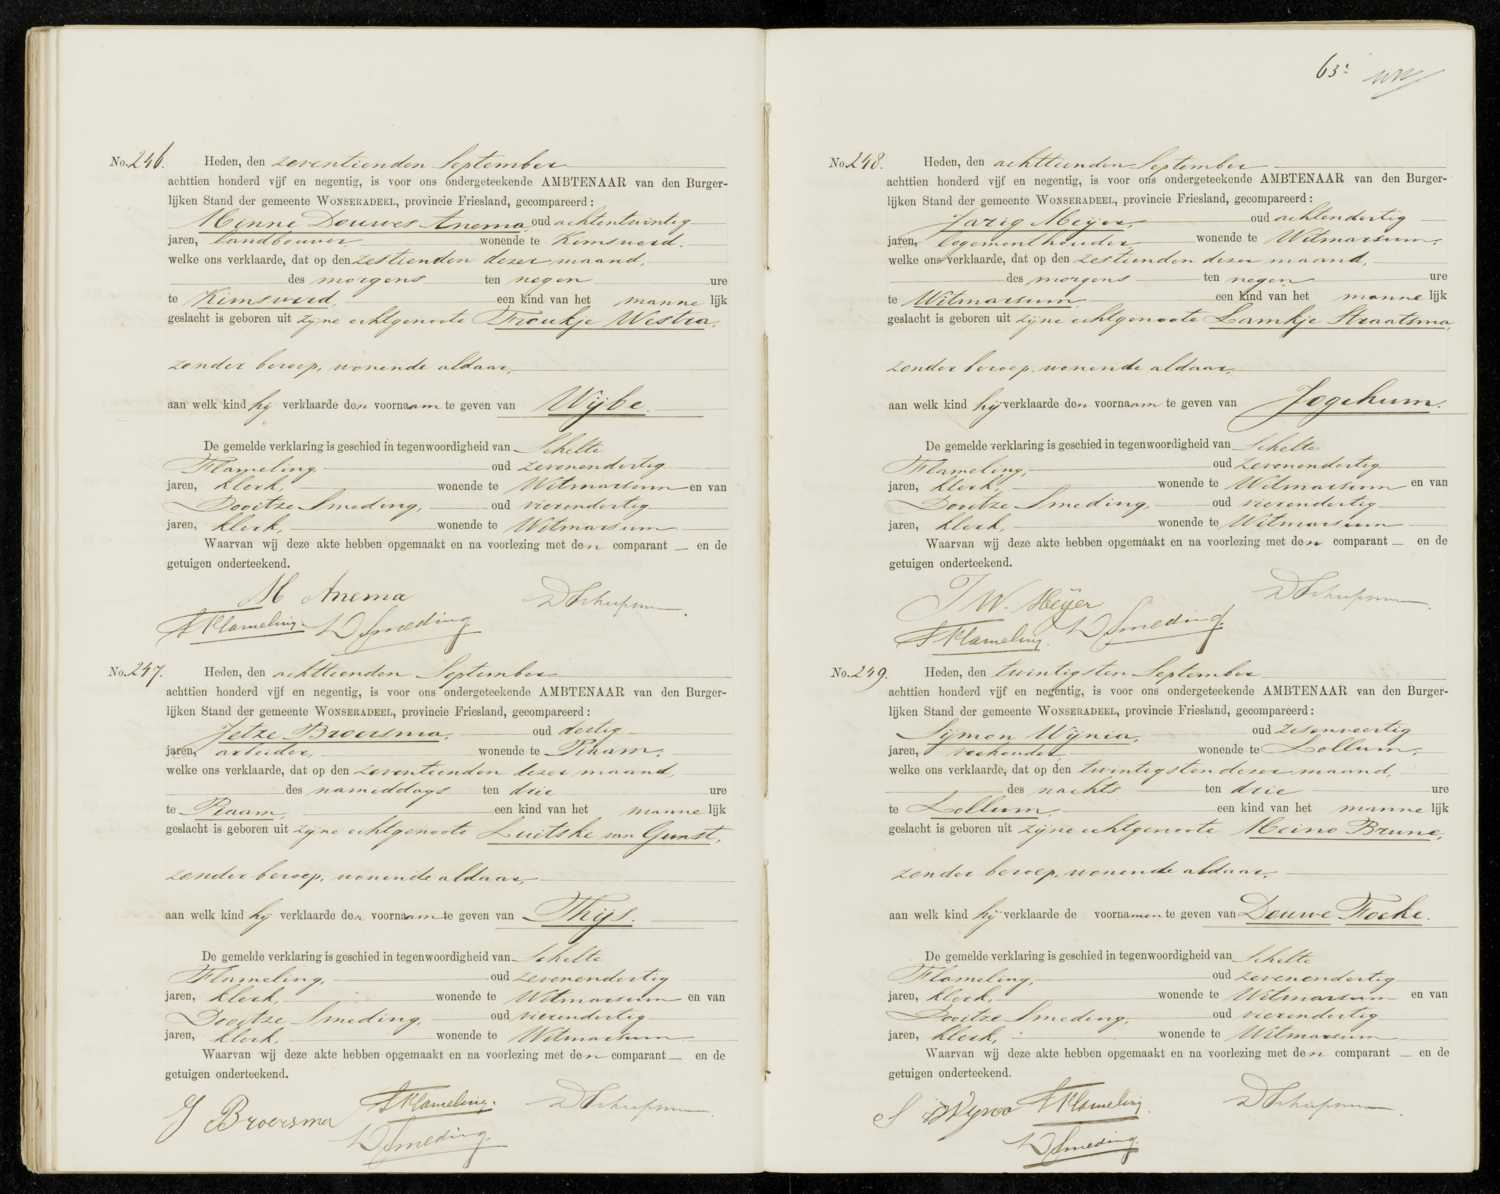 No. 246. Heden, den zeventienden September
achttien honderd vijf en negentig, is voor ons ondergeteekende AMBTENAAR van den Burger-
lijken Stand der gemeente WONSERADEEL, provincie Friesland, gecompareerd:
Minne Douwes Anema, oud achtentwintig
jaren, landbouwer wonende te Kimswerd.
welke ons verklaarde, dat op den zestienden dezer maand,
des morgens ten negen ure
te Kimswerd, een kind van het mannelijk
geslacht is geboren uit zijne echtgenoote Froukje Westra,
zonder beroep, wonende aldaar,
aan welk kind hij verklaarde den voornaam te geven van Wijbe.
De gemelde verklaring is geschied in tegenwoordigheid van Schelte
Flameling oud zevenendertig
jaren, klerk, wonende te Witmarsum en van
Dooitze Smeding, oud vierendertig
jaren, klerk, wonende te Witmarsum
Waarvan wij deze akte hebben opgemaakt en na voorlezing met den comparant — en de
getuigen onderteekend.
M Anema
S Flameling D Smeding
No. 247. Heden, den achttienden September
achttien honderd vijf en negentig, is voor ons ondergeteekende AMBTENAAR van den Burger-
lijken Stand der gemeente WONSERADEEL, provincie Friesland, gecompareerd:
Jetze Broersma, oud dertig
jaren, arbeider, wonende te Piaam,
welke ons verklaarde, dat op den zeventienden dezer maand,
des nameddags ten drie ure
te Piaam, een kind van het mannelijk
geslacht is geboren uit zijne echtgenoote Luitske van Gunst,
zonder beroep, wonende aldaar,
aan welk kind hij verklaarde den voornaam te geven van Thijs.
De gemelde verklaring is geschied in tegenwoordigheid van Schelte
Flameling, oud zevenendertig
jaren, klerk, wonende te Witmarsum en van
Dooitze Smeding, oud vierendertig
jaren, klerk, wonende te Witmarsum
Waarvan wij deze akte hebben opgemaakt en na voorlezing met den comparant — en de
getuigen onderteekend.
J Broersma S Flameling.
D Smeding.
63
No. 248. Heden, den achttienden September
achttien honderd vijf en negentig, is voor ons ondergeteekende AMBTENAAR van den Burger-
lijken Stand der gemeente WONSERADEEL, provincie Friesland, gecompareerd:
Jarig Meijer, oud achtendertig
jaren, logementhouder, wonende te Witmarsum,
welke ons verklaarde, dat op den zestienden dezer maand,
des morgens ten negen ure
te Witmarsum, een kind van het mannelijk
geslacht is geboren uit zijne echtgenoote Lamkje Straatsma,
zonder beroep, wonende aldaar,
aan welk kind hij verklaarde den voornaam te geven van Jogchum.
De gemelde verklaring is geschied in tegenwoordigheid van Schelte
Flameling, oud zevenendertig
jaren, klerk, wonende te Witmarsum en van
Dooitze Smeding, oud vierendertig
jaren, klerk, wonende te Witmarsum
Waarvan wij deze akte hebben opgemaakt en na voorlezing met den comparant — en de
getuigen onderteekend.
J W. Meijer
S Flameling. D Smeding.
No. 249. Heden, den twintigsten September
achttien honderd vijf en negentig, is voor ons ondergeteekende AMBTENAAR van den Burger-
lijken Stand der gemeente WONSERADEEL, provincie Friesland, gecompareerd:
Sijmon Wijnia, oud zesenveertig
jaren, veehouder wonende te Lollum,
welke ons verklaarde, dat op den twintigsten dezer maand,
des nachts ten drie ure
te Lollum, een kind van het mannelijk
geslacht is geboren uit zijne echtgenoote Meino Brune,
zonder beroep, wonende aldaar,
aan welk kind hij verklaarde de voornamen te geven van Douwe Focke.
De gemelde verklaring is geschied in tegenwoordigheid van Schelte
Flameling, oud zevenendertig
jaren, klerk, wonende te Witmarsum en van
Dooitze Smeding, oud vierendertig
jaren, klerk, wonende te Witmarsum
Waarvan wij deze akte hebben opgemaakt en na voorlezing met den comparant — en de
getuigen onderteekend.
S Flameling.
D Smeding.